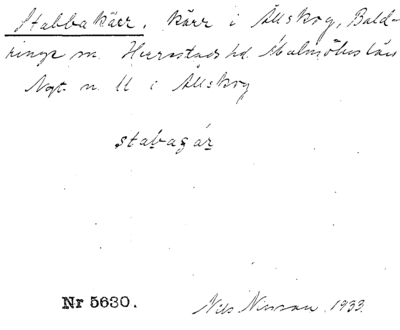 Stabbakärr. Kärr i Ällskog, Bald-
ringe sn. Herrestads hd. Malmöhus län
Ngt. n. U i Ällskog
stabagár
Nr 5630.
Nils Nilsson 1933.